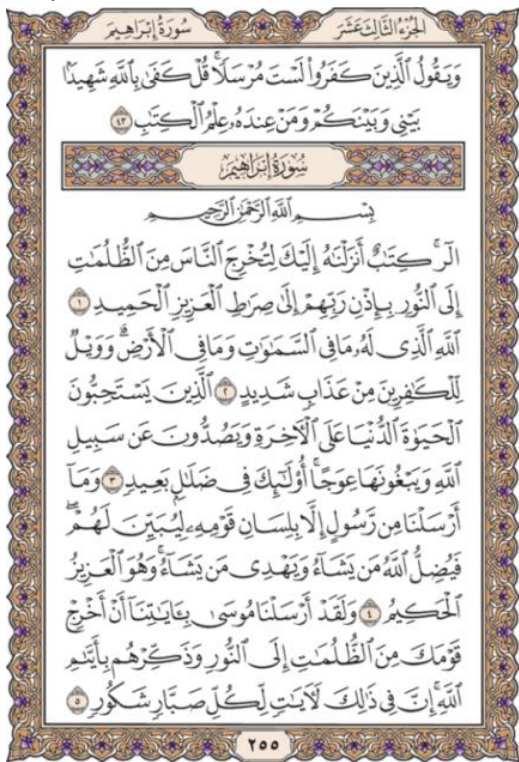 سُورَةُ إِبْرَاهِيم
الجُزْءُ الثَّالِثَ عَشَرَ
وَيَقُولُ الَّذِينَ كَفَرُوا۟ لَسْتَ مُرْسَلًاۚ قُلْ كَفَىٰ بِاللَّهِ شَهِيدًۢا
بَيْنِي وَبَيْنَكُمْ وَمَنْ عِندَهُۥ عِلْمُ الْكِتَٰبِ ٤٣
سُورَةُ إِبْرَاهِيم
بِسْمِ اللَّهِ الرَّحْمَٰنِ الرَّحِيمِ
الٓرۚ كِتَٰبٌ أَنزَلْنَٰهُ إِلَيْكَ لِتُخْرِجَ النَّاسَ مِنَ الظُّلُمَٰتِ
إِلَى النُّورِ بِإِذْنِ رَبِّهِمْ إِلَىٰ صِرَٰطِ الْعَزِيزِ الْحَمِيدِ ١
اللَّهِ الَّذِي لَهُۥ مَا فِي السَّمَٰوَٰتِ وَمَا فِي الْأَرْضِۗ وَوَيْلٌ
لِّلْكَٰفِرِينَ مِنْ عَذَابٍ شَدِيدٍ ٢ الَّذِينَ يَسْتَحِبُّونَ
الْحَيَوٰةَ الدُّنْيَا عَلَى الْءَاخِرَةِ وَيَصُدُّونَ عَن سَبِيلِ
اللَّهِ وَيَبْغُونَهَا عِوَجًاۚ أُو۟لَٰٓئِكَ فِي ضَلَٰلٍۭ بَعِيدٍ ٣ وَمَآ
أَرْسَلْنَا مِن رَّسُولٍ إِلَّا بِلِسَانِ قَوْمِهِۦ لِيُبَيِّنَ لَهُمْۖ
فَيُضِلُّ اللَّهُ مَن يَشَآءُ وَيَهْدِي مَن يَشَآءُۚ وَهُوَ الْعَزِيزُ
الْحَكِيمُ ٤ وَلَقَدْ أَرْسَلْنَا مُوسَىٰ بِـَٔايَٰتِنَآ أَنْ أَخْرِجْ
قَوْمَكَ مِنَ الظُّلُمَٰتِ إِلَى النُّورِ وَذَكِّرْهُم بِأَيَّىٰمِ
اللَّهِۚ إِنَّ فِي ذَٰلِكَ لَءَايَٰتٍ لِّكُلِّ صَبَّارٍ شَكُورٍ ٥
٢٥٥